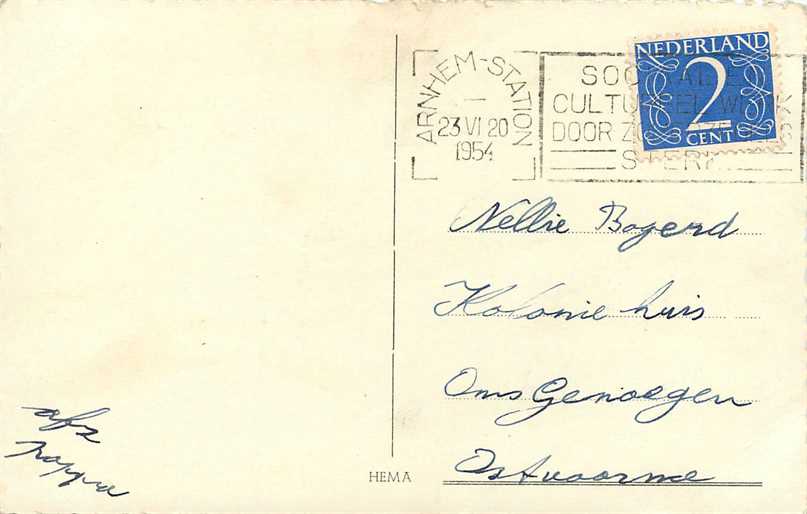 ARNHEM-STATION
23 VI 20
1954
SOCIAAL EN
CULTUREEL WERK
DOOR ZOMERZEGELS
STERK
NEDERLAND
2
CENT
Nellie Bogerd
Kolonie huis
Ons Genoegen
Oostvoorne
afz
pappa
HEMA